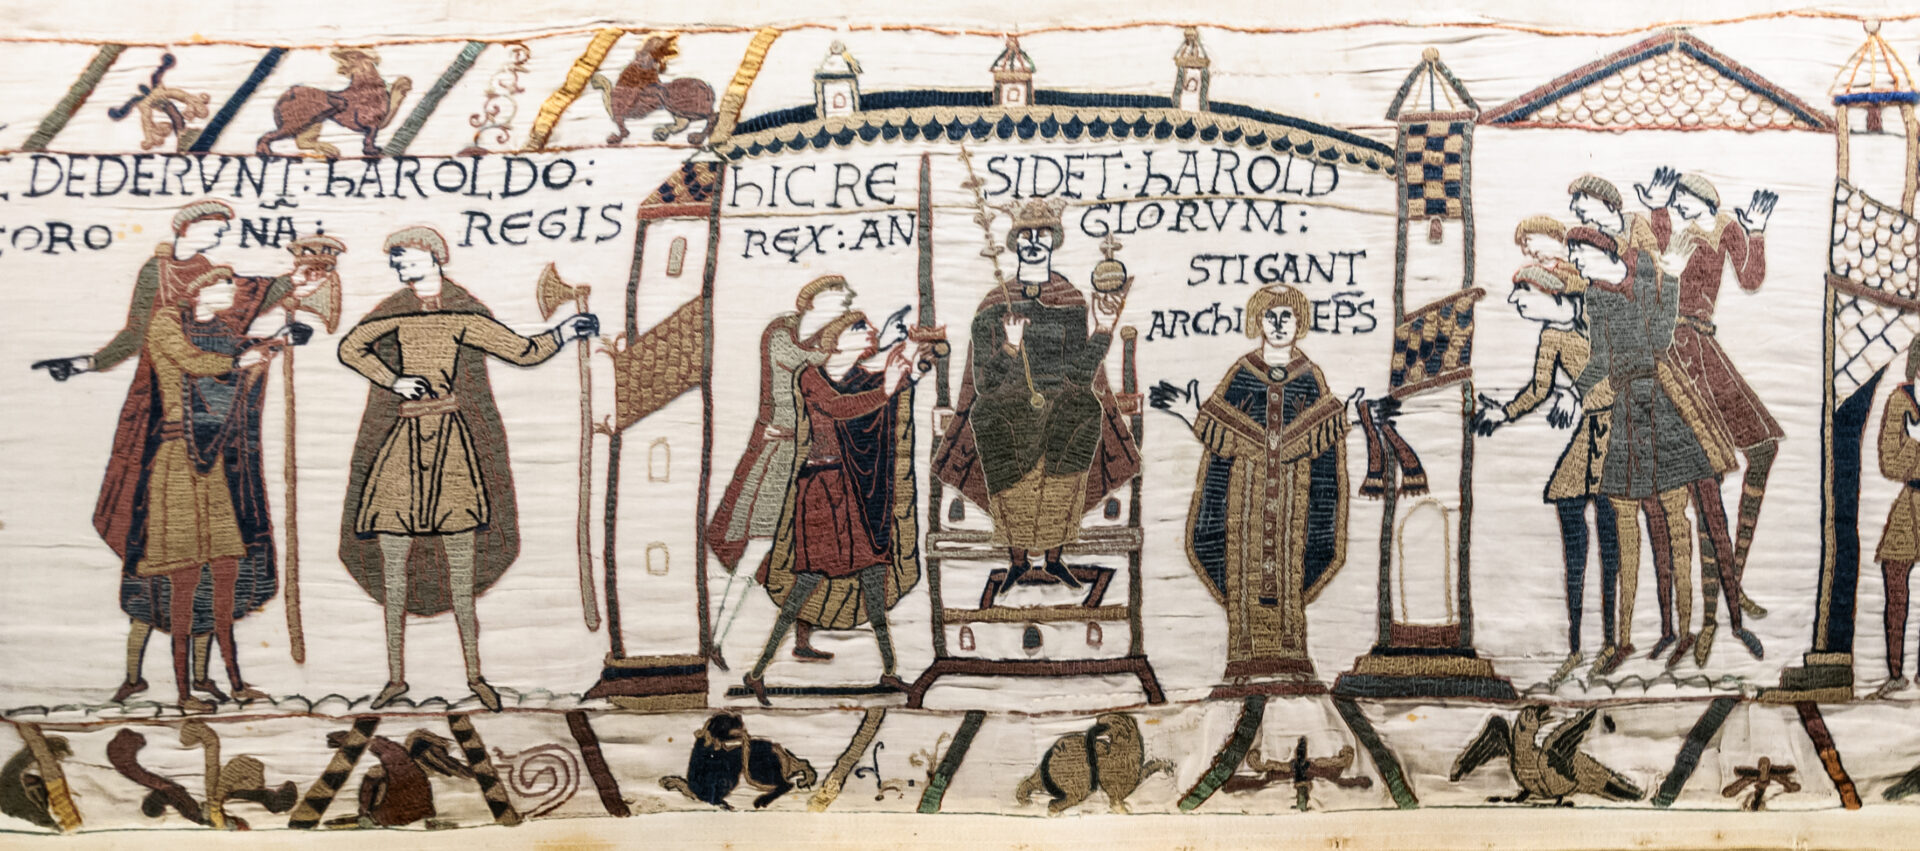 DEDERVNT: hAROLDO:
CORO NA: REGIS
hIC RE SIDET: hAROLD
REX: AN GLORVM:
STIGANT
ARChI EPS